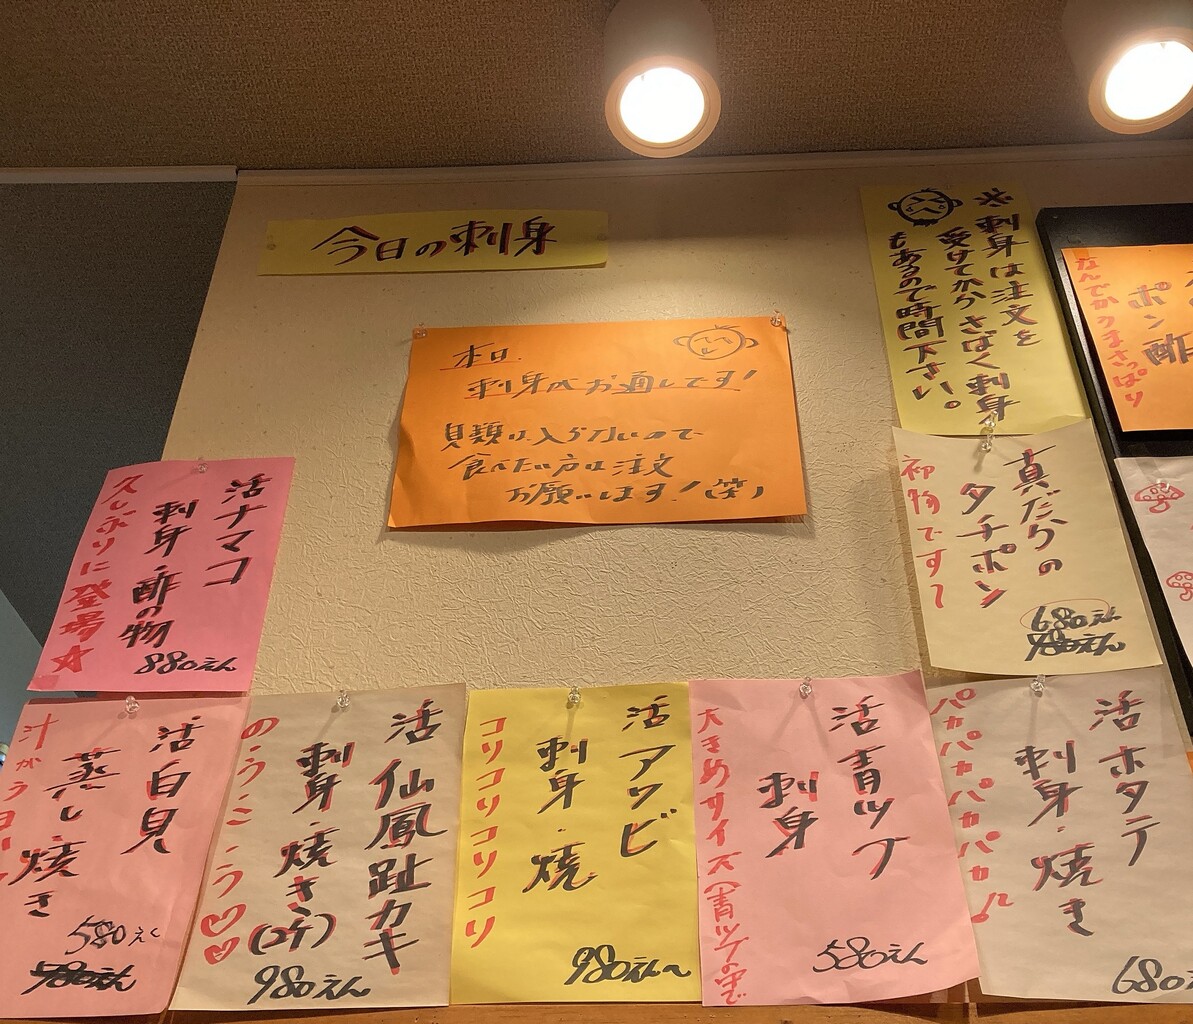 今日の刺身
本日、
刺身がお通しです!
貝類は入らないので
食べたい方は注文
お願いします!(笑)
※刺身は注文を
受けてからさばく刺身
もあるので時間下さい。
ポン酢
なんでかうまさっぱり
真だらの
タチポン
初物です!
680えん
活ナマコ
刺身・酢の物
久しぶりに登場☆
880えん
活白貝
蒸し・焼き
580えん
活仙鳳趾カキ
刺身・焼き(2ケ)
のうこ・う♡♡
980えん
活アワビ
刺身・焼
コリコリコリコリコリ
980えん〜
活青ツブ
刺身
大きめサイズ(青ツブの中で
580えん
活ホタテ
刺身・焼き
パカパカパカパカ♫
680え